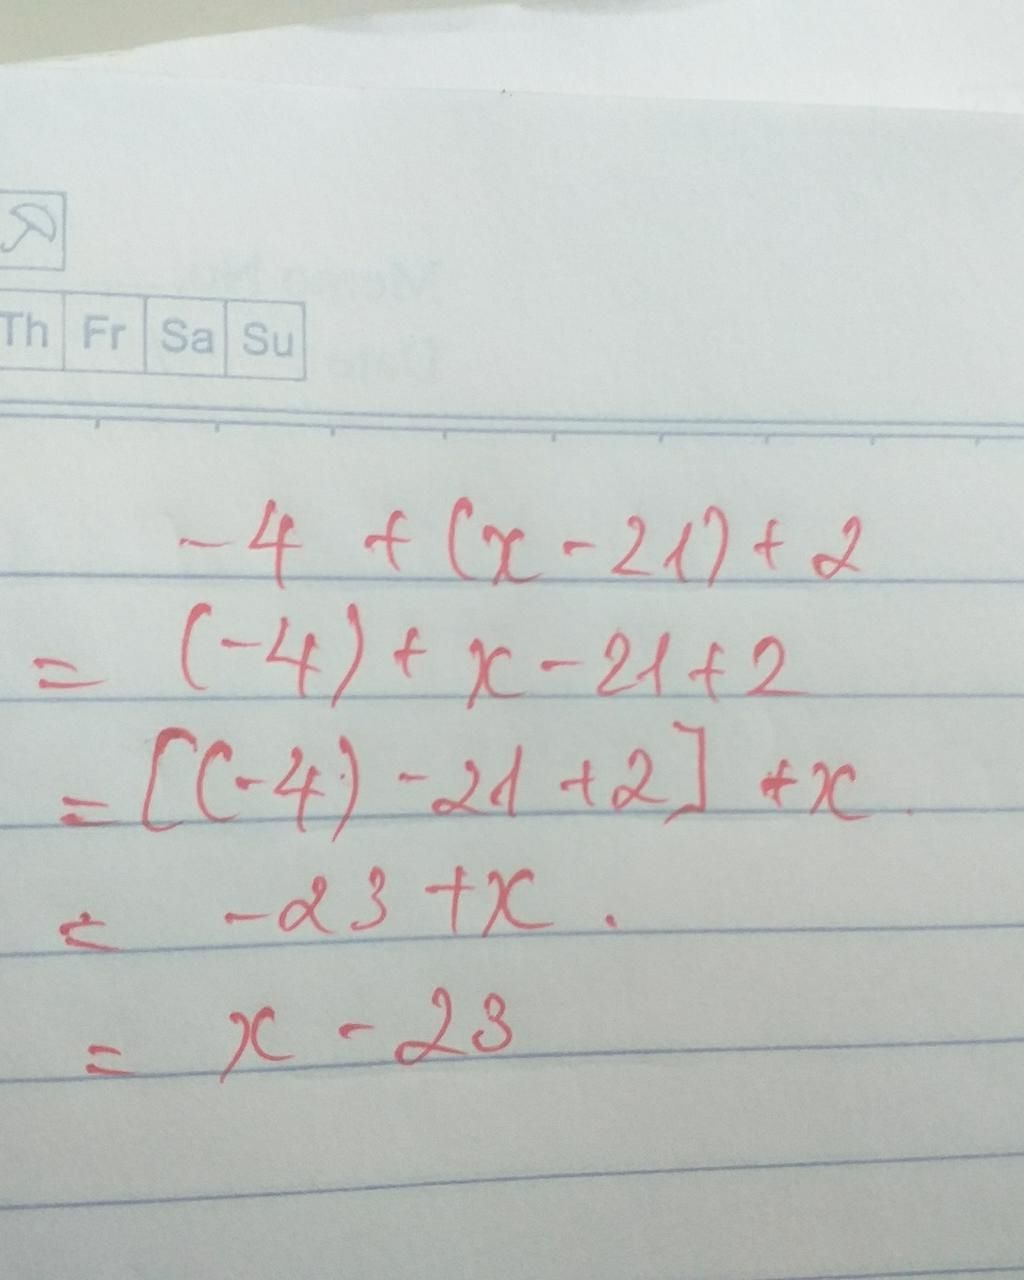 Th Fr Sa Su
-4 + (x - 21) + 2
= (-4) + x - 21 + 2
= [(-4) - 21 + 2] + x.
= -23 + x.
= x - 23